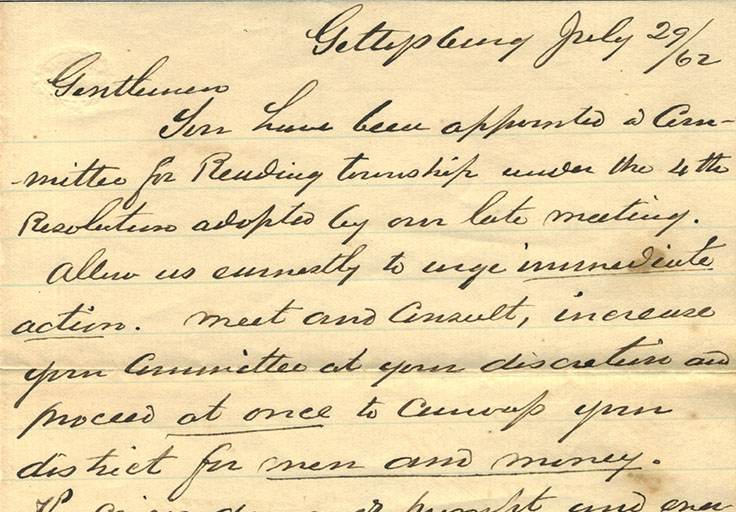 Gettysburg July 29/62
Gentlemen
You have been appointed a Com-
-mittee for Reading township under the 4th
Resolution adopted by our late meeting.
Allow us earnestly to urge immediate
action. Meet and Consult, increase
your Committee at your discretion and
proceed at once to Canvass your
district for men and money.
prompt and